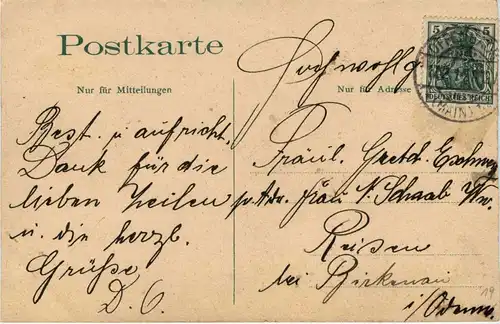 Postkarte
5 5
DEUTSCHES REICH
(MAIN)
Nur für Mitteilungen
Nur für Adresse
Best. u. aufricht.
Dank für die
lieben Zeilen
u. die herzl.
Grüße
D. O.
Hochwohlg
Fräul. Gretch.
p. Adr. Frau N. Schaab Ww.
Reisen
bei Birkenau
i/Odenw.
19